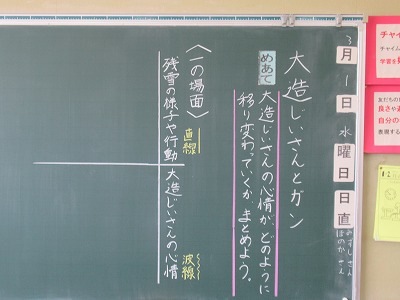 チャイム
学習を
友だちの
良さや
自分の
表現する
3月1日水曜日
日直
大造じいさんとガン
めあて
大造じいさんの心情が、どのように
移り変わっていくか まとめよう。
〈一の場面〉
残雪の様子や行動
直線
大造じいさんの心情
波線